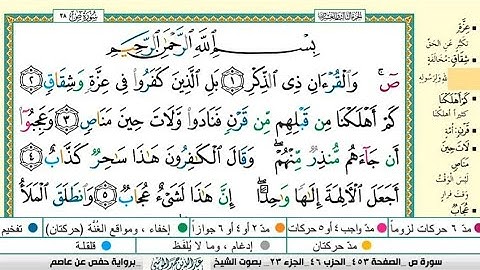 سورة ص ٣٨
بِسْمِ اللَّهِ الرَّحْمَٰنِ الرَّحِيمِ
صٓ ۚ وَالْقُرْءَانِ ذِى الذِّكْرِ ١ بَلِ الَّذِينَ كَفَرُوا فِى عِزَّةٍ وَشِقَاقٍ ٢
كَمْ أَهْلَكْنَا مِن قَبْلِهِم مِّن قَرْنٍ فَنَادَوا وَّلَاتَ حِينَ مَنَاصٍ ٣ وَعَجِبُوٓا
أَن جَآءَهُم مُّنذِرٌ مِّنْهُمْ ۖ وَقَالَ الْكَٰفِرُونَ هَٰذَا سَٰحِرٌ كَذَّابٌ ٤
أَجَعَلَ الْآلِهَةَ إِلَٰهًا وَٰحِدًا ۖ إِنَّ هَٰذَا لَشَىْءٌ عُجَابٌ ٥ وَانطَلَقَ الْمَلَأُ
عِزَّةٍ
تكبّر عن الحق
شِقَاقٍ: مخالفة
لله ولرسوله
كَمْ أَهْلَكْنَا
كثيرا أهلكنا
قَرْنٍ: أمة
لَاتَ حِينَ
مَنَاصٍ
ليس الوقت
وقت فرار
عُجَابٌ
مدّ ٦ حركات لزوماً مدّ ٢ أو ٤ أو ٦ جوازاً إخفاء، ومواقع الغُنَّة (حركتان) تفخيم
مدّ واجب ٤ أو ٥ حركات مدّ حركتان إدغام، وما لا يُلفَظ قلقلة
سورة ص ـ الصفحة ٤٥٣ ـ الحزب ٤٦ ـ الجزء ٢٣ ـ بصوت الشيخ ـ برواية حفص عن عاصم